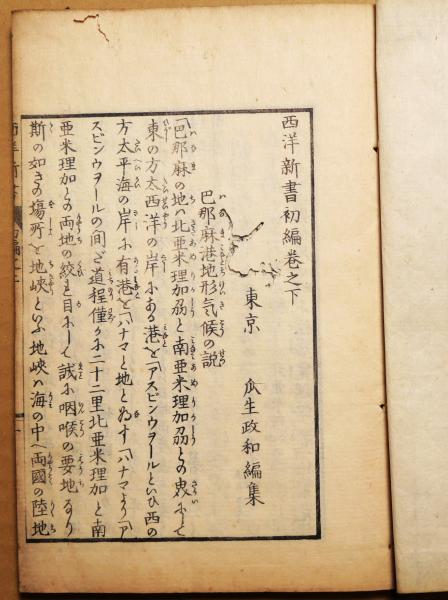 西洋新書初編巻之下
東京　瓜生政和編集
巴那麻港地形気候の説
巴那麻の地ハ北亜米理加刕と南亜米理加刕との界にて
東の方太西洋の岸にある港を「アスビンウヲールといひ西の
方太平海の岸に有港を「ハナマと地とゐす「ハナマより「ア
スビンウヲールの間ざ道程僅かに二十二里北亜米理加と南
亜米理加との両地の絞れ目にして誠に咽喉の要地なり
斯の如きの場所を地峡といふ地峡ハ海の中へ両國の陸地